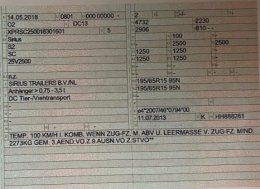 14.05.2018 0801 000 00000 -
2
O2 DC13
4732 -2230
XPRSC250018301601 5
2906 810 - -
Sirius
S2
2500
SC
1250 1250
25V2500
1250 1250
n.z.
SIRIUS TRAILERS B.V./NL
195/65R15 95N
Anhänger > 0,75 - 3,5 t
195/65R15 95N
DC Tier-/Viehtransport
e4*2007/46*0794*00
11.07.2013 K
TEMP. 100 KM/H I. KOMB. WENN ZUG-FZ. M. ABV U. LEERMASSE V. ZUG-FZ. MIND.
2273KG GEM. 3.AEND.VO.Z.9.AUSN.VO.Z.STVO**